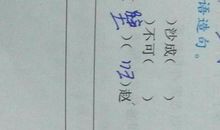 语造句。
)沙成(　　)
)不可(　　)
)(　　)赵